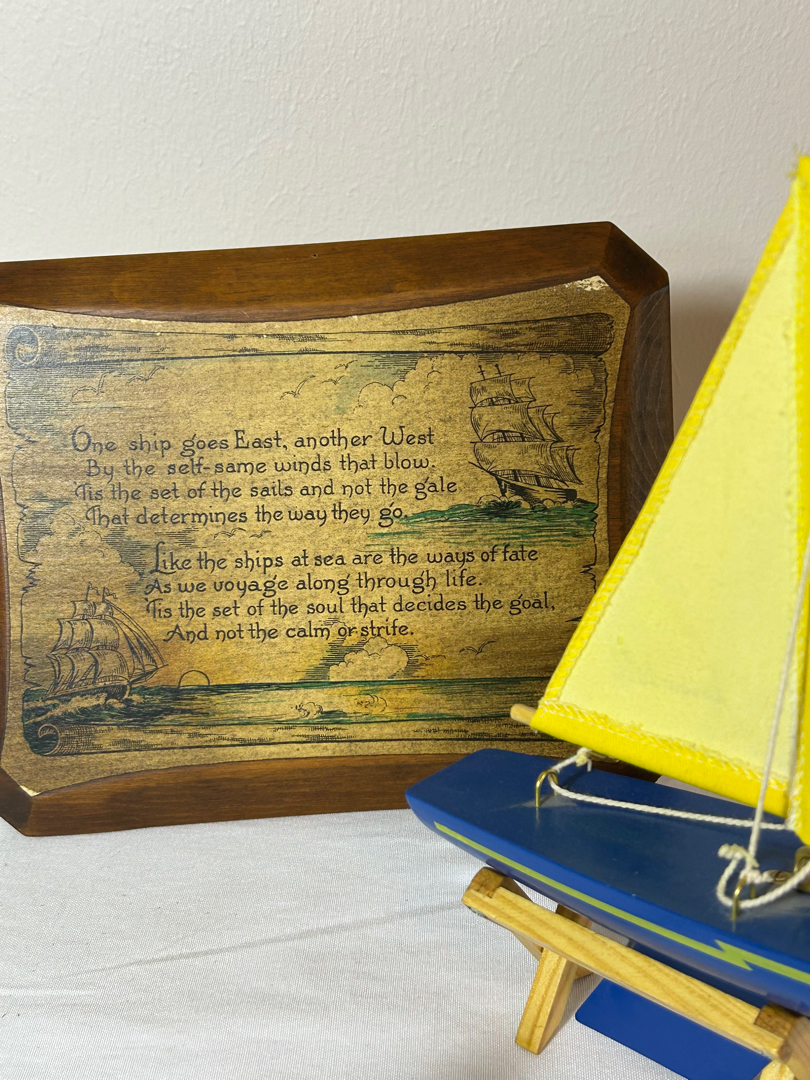 One ship goes East, another West
By the self-same winds that blow.
'Tis the set of the sails and not the gale
That determines the way they go.
Like the ships at sea are the ways of fate
As we voyage along through life.
'Tis the set of the soul that decides the goal,
And not the calm or strife.